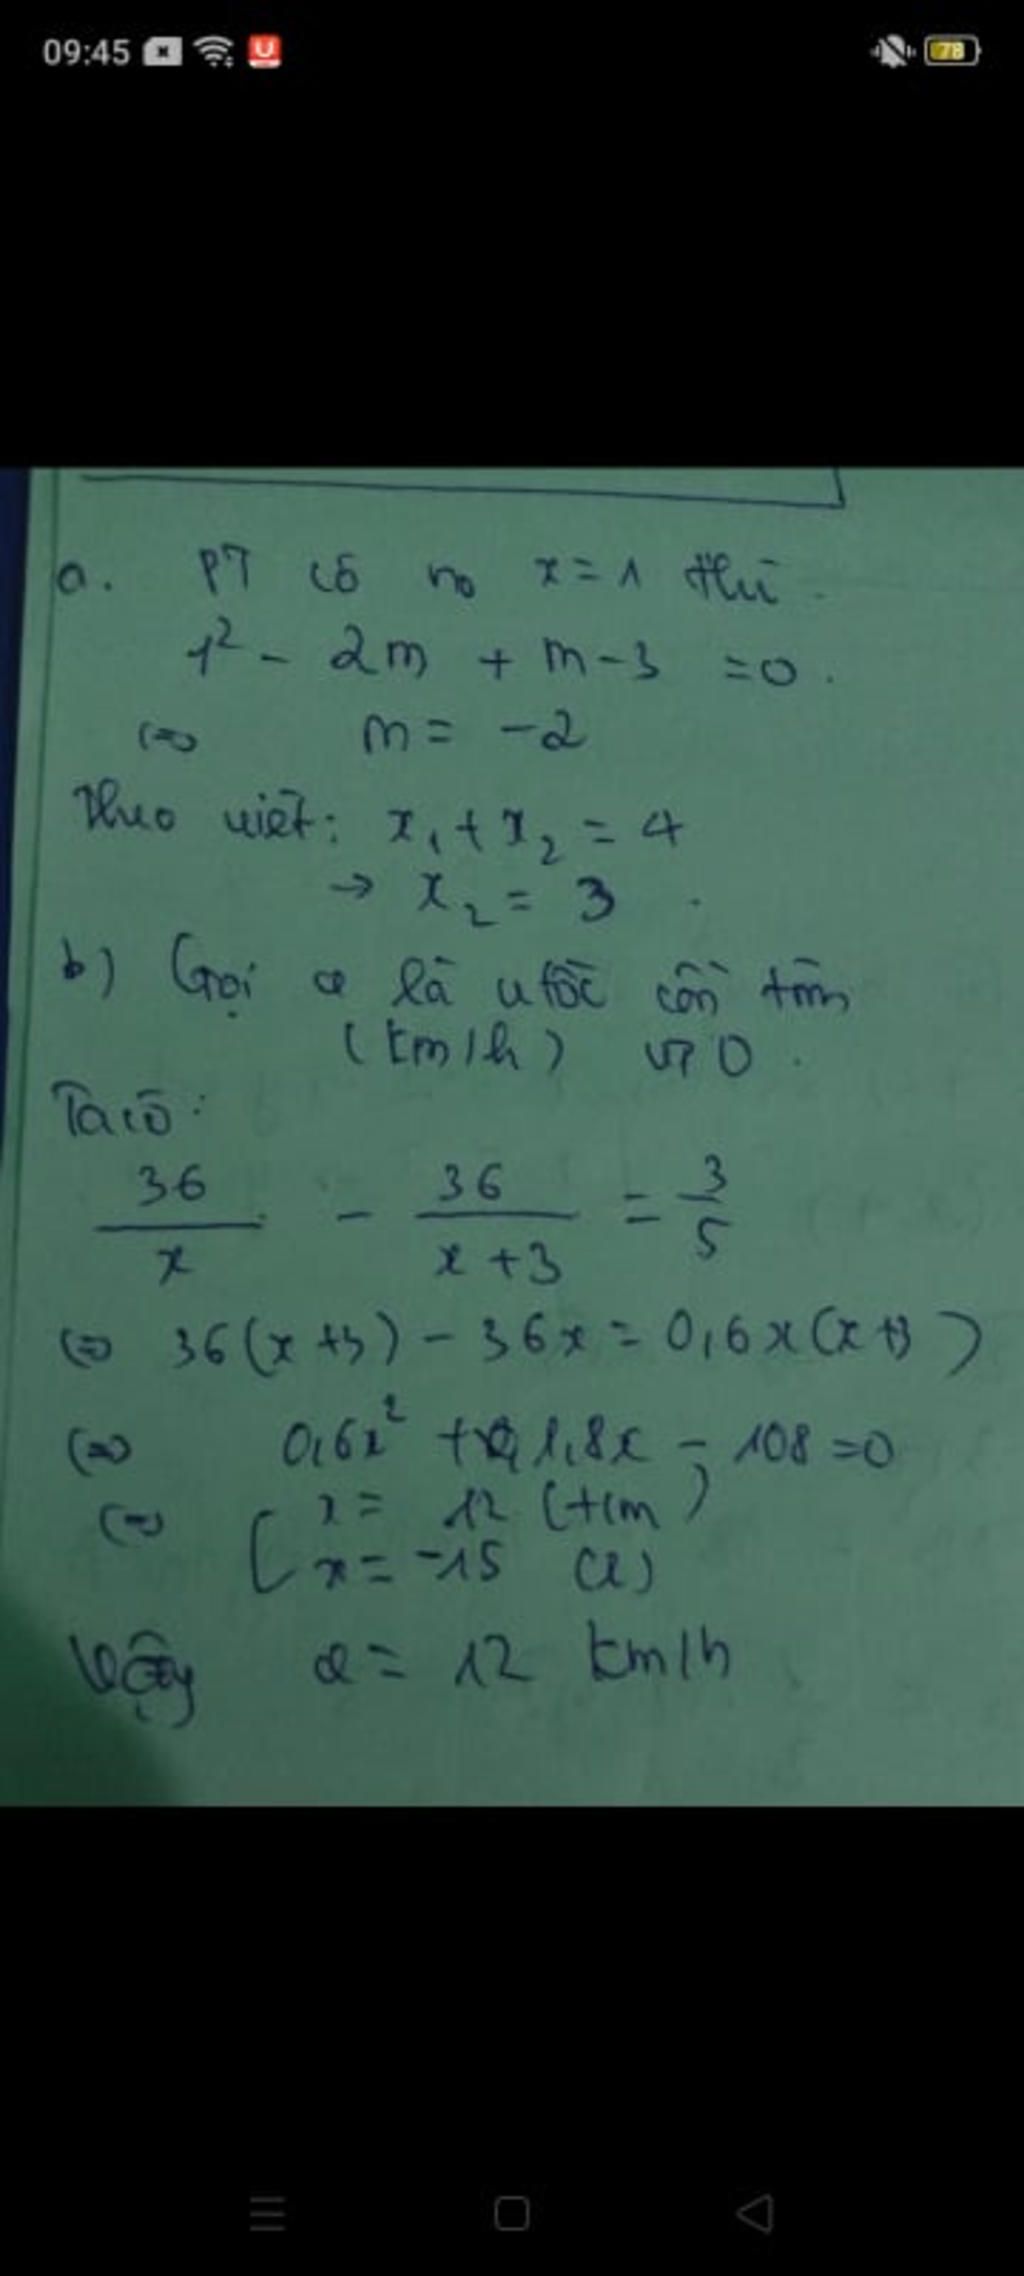 09:45
78
a. PT có no x=1 thì
1² - 2m + m-3 =0.
<=> m= -2
Theo viét: x₁+x₂ = 4
→ x₂ = 3
b) Gọi x là v tốc cần tìm
(km/h) v>0.
Ta có:
36/x - 36/(x+3) = 3/5
<=> 36(x+3) - 36x = 0,6x(x+3)
<=> 0,6x² + 1,8x - 108 =0
<=> [ x = 12 (tm)
x = -15 (l)
Vậy x = 12 km/h